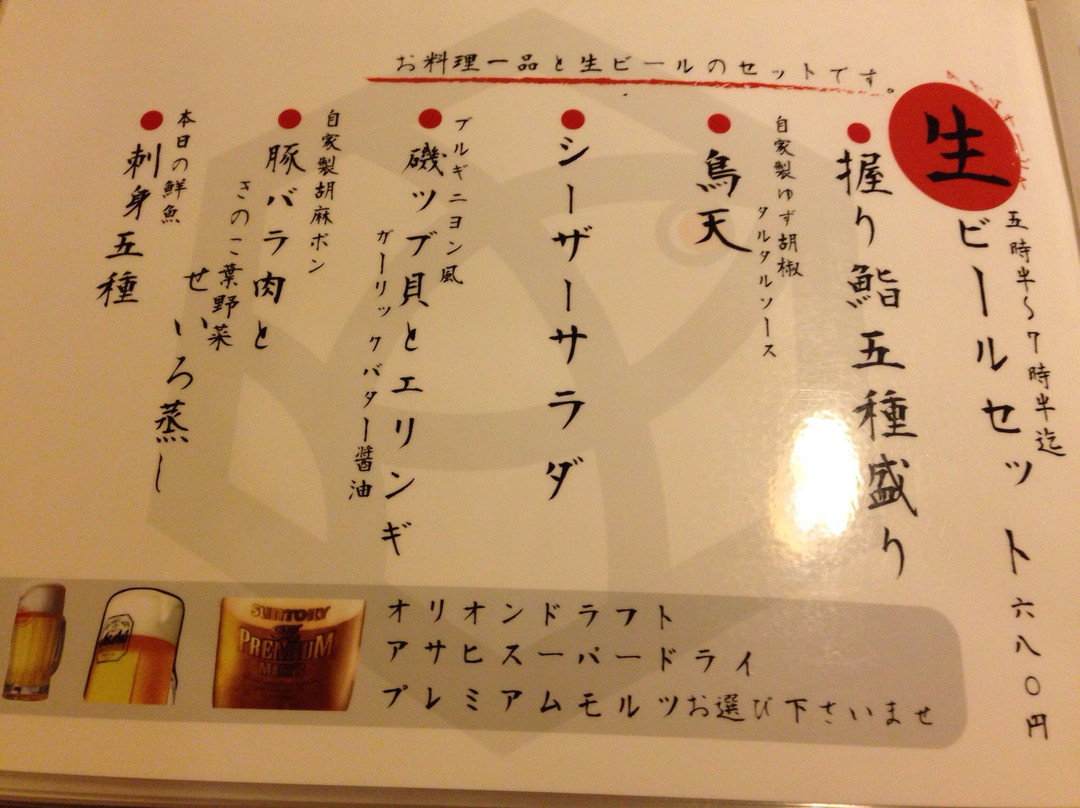 お料理一品と生ビールのセットです。
五時半〜7時半迄
生ビールセット 六八〇円
握り鮨五種盛り
自家製ゆず胡椒
タルタルソース
鳥天
シーザーサラダ
ブルギニヨン風
磯ツブ貝とエリンギ
ガーリックバター醤油
自家製胡麻ポン
豚バラ肉と
きのこ葉野菜
せいろ蒸し
本日の鮮魚
刺身五種
オリオンドラフト
アサヒスーパードライ
プレミアムモルツお選び下さいませ
SUNTORY
THE
PREMIUM
MALT'S
Asahi